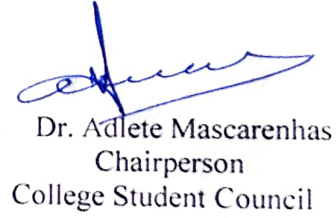 Dr. Adlete Mascarenhas
Chairperson
College Student Council